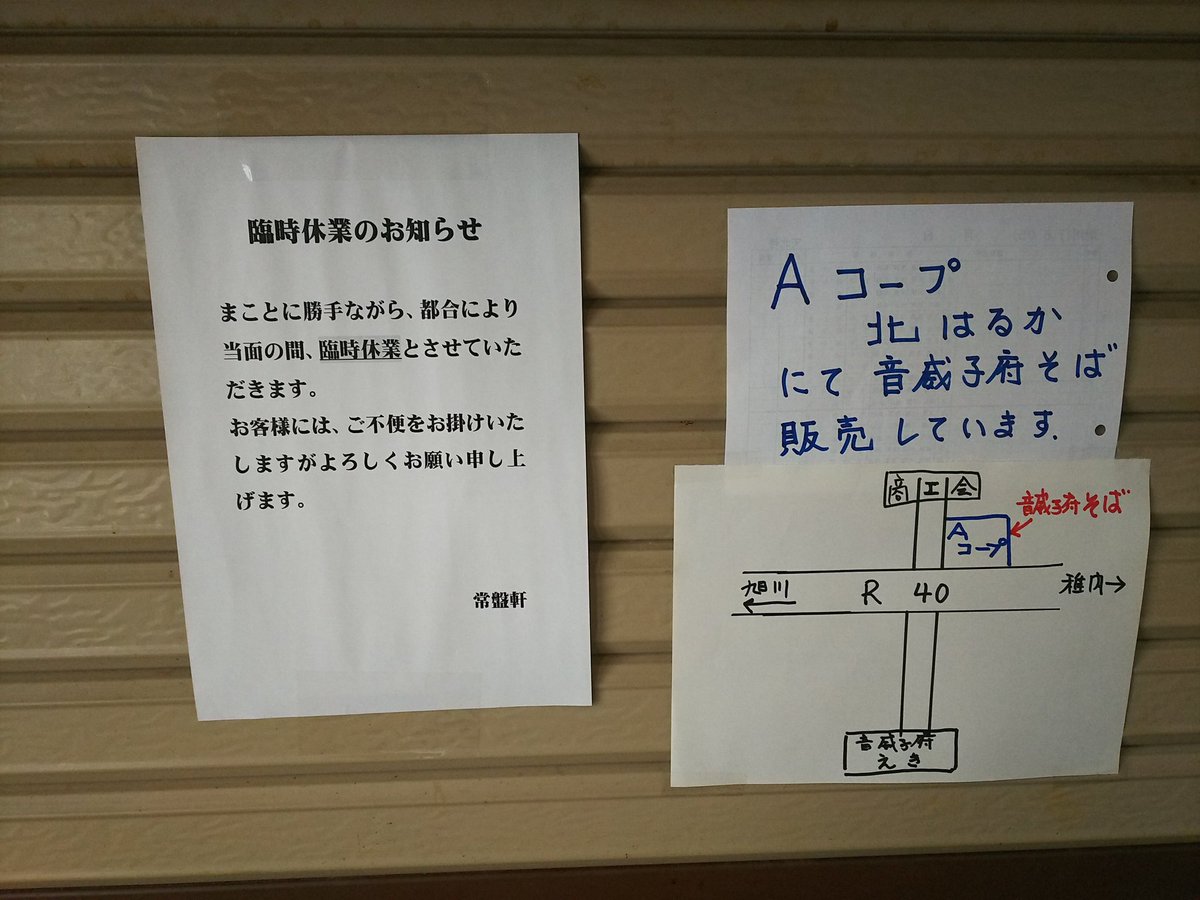 臨時休業のお知らせ
まことに勝手ながら、都合により
当面の間、臨時休業とさせていた
だきます。
お客様には、ご不便をお掛けいた
しますがよろしくお願い申し上
げます。
常盤軒
A コープ
北はるか
にて 音威子府そば
販売しています.
商工会
音威子府そば
A
コープ
旭川
R 40
稚内
音威子府
えき